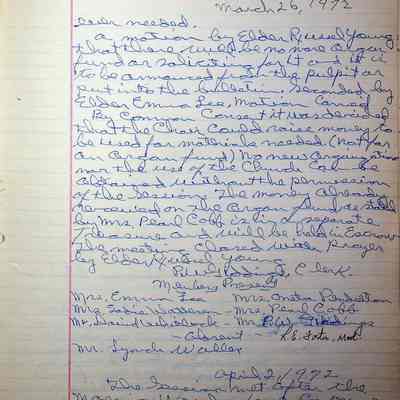 March 26, 1972
ever needed.
A motion by Elder Russel Young
that there will be no more organ
fund or soliciting for it and it is
to be announced from the pulpit or
put into the bulletin. Seconded by
Elder Emma Lee. Motion Carried
By Common Consent it was decided
that the Choir could raise money to
be used for materials needed (not for
an organ fund) No new organ
nor the use of the Church Can be
obtained without the permission
of the Session. The money already
received on the Organ fund
by Mrs. Pearl Cobb is in a separate
Treasure and will be held in Escrow
The meeting Closed with Prayer
by Elder Russel Young
Clerk.
Members Present
Mrs. Emma Lee Mrs. Oneta
Mrs. Sadie Mrs. Pearl Cobb
Mr. David Mr.
Absent
Mr. Lynch Waller
April 2, 1972
The Session met after the